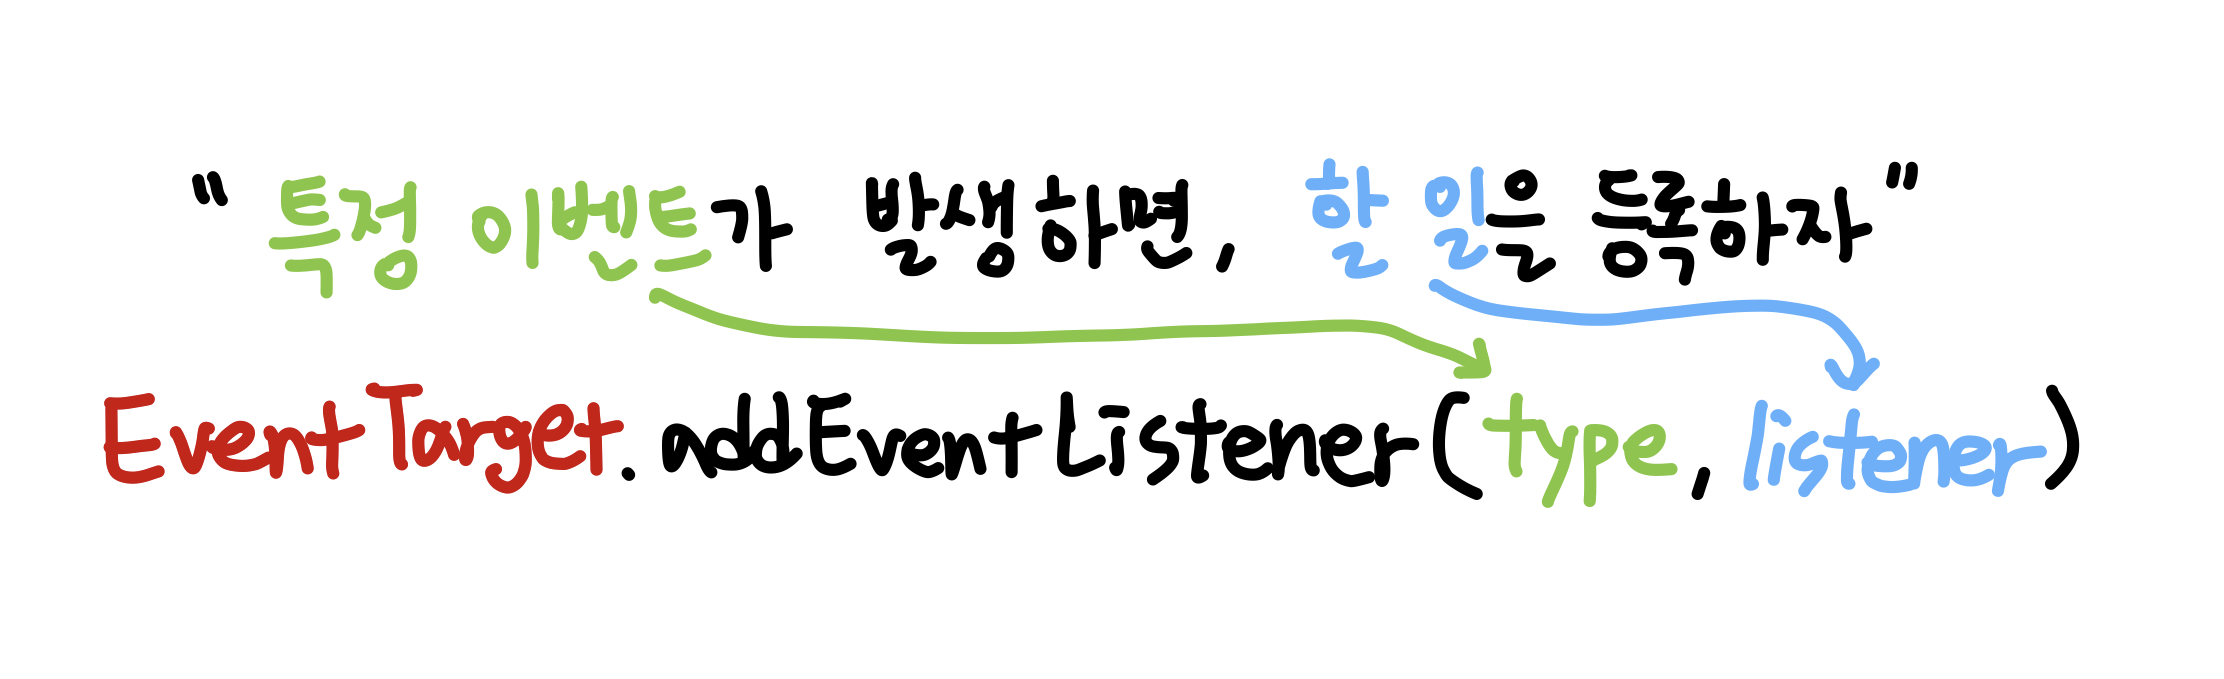 “특정 이벤트가 발생하면, 할 일을 등록하자”
EventTarget.addEventListener(type, listener)